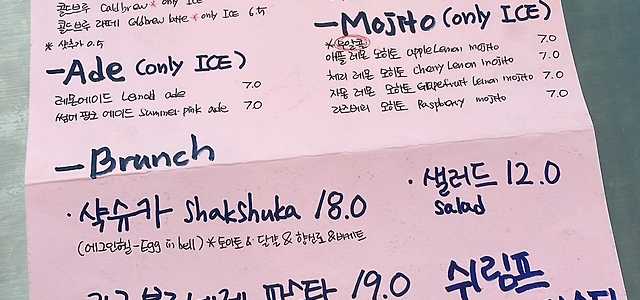 콜드브루 Coldbrew * only ICE
콜드브루 라떼 Coldbrew latte * only ICE 6.5
* 샷추가 0.5
-Ade (only ICE)
레몬에이드 Lemon ade 7.0
썸머 핑크 에이드 Summer pink ade 7.0
-Mojito (only ICE)
*무알콜
애플 레몬 모히또 apple Lemon mojito 7.0
체리 레몬 모히또 Cherry Lemon mojito 7.0
자몽 레몬 모히또 Grapefruit Lemon mojito 7.0
라즈베리 모히또 Raspberry mojito 7.0
-Brunch
· 샥슈카 Shakshuka 18.0
(에그인헬-Egg in hell) * 토마토 & 달걀 & 향신료 & 바게트
· 샐러드 12.0
Salad
파스타 19.0
쉬림프